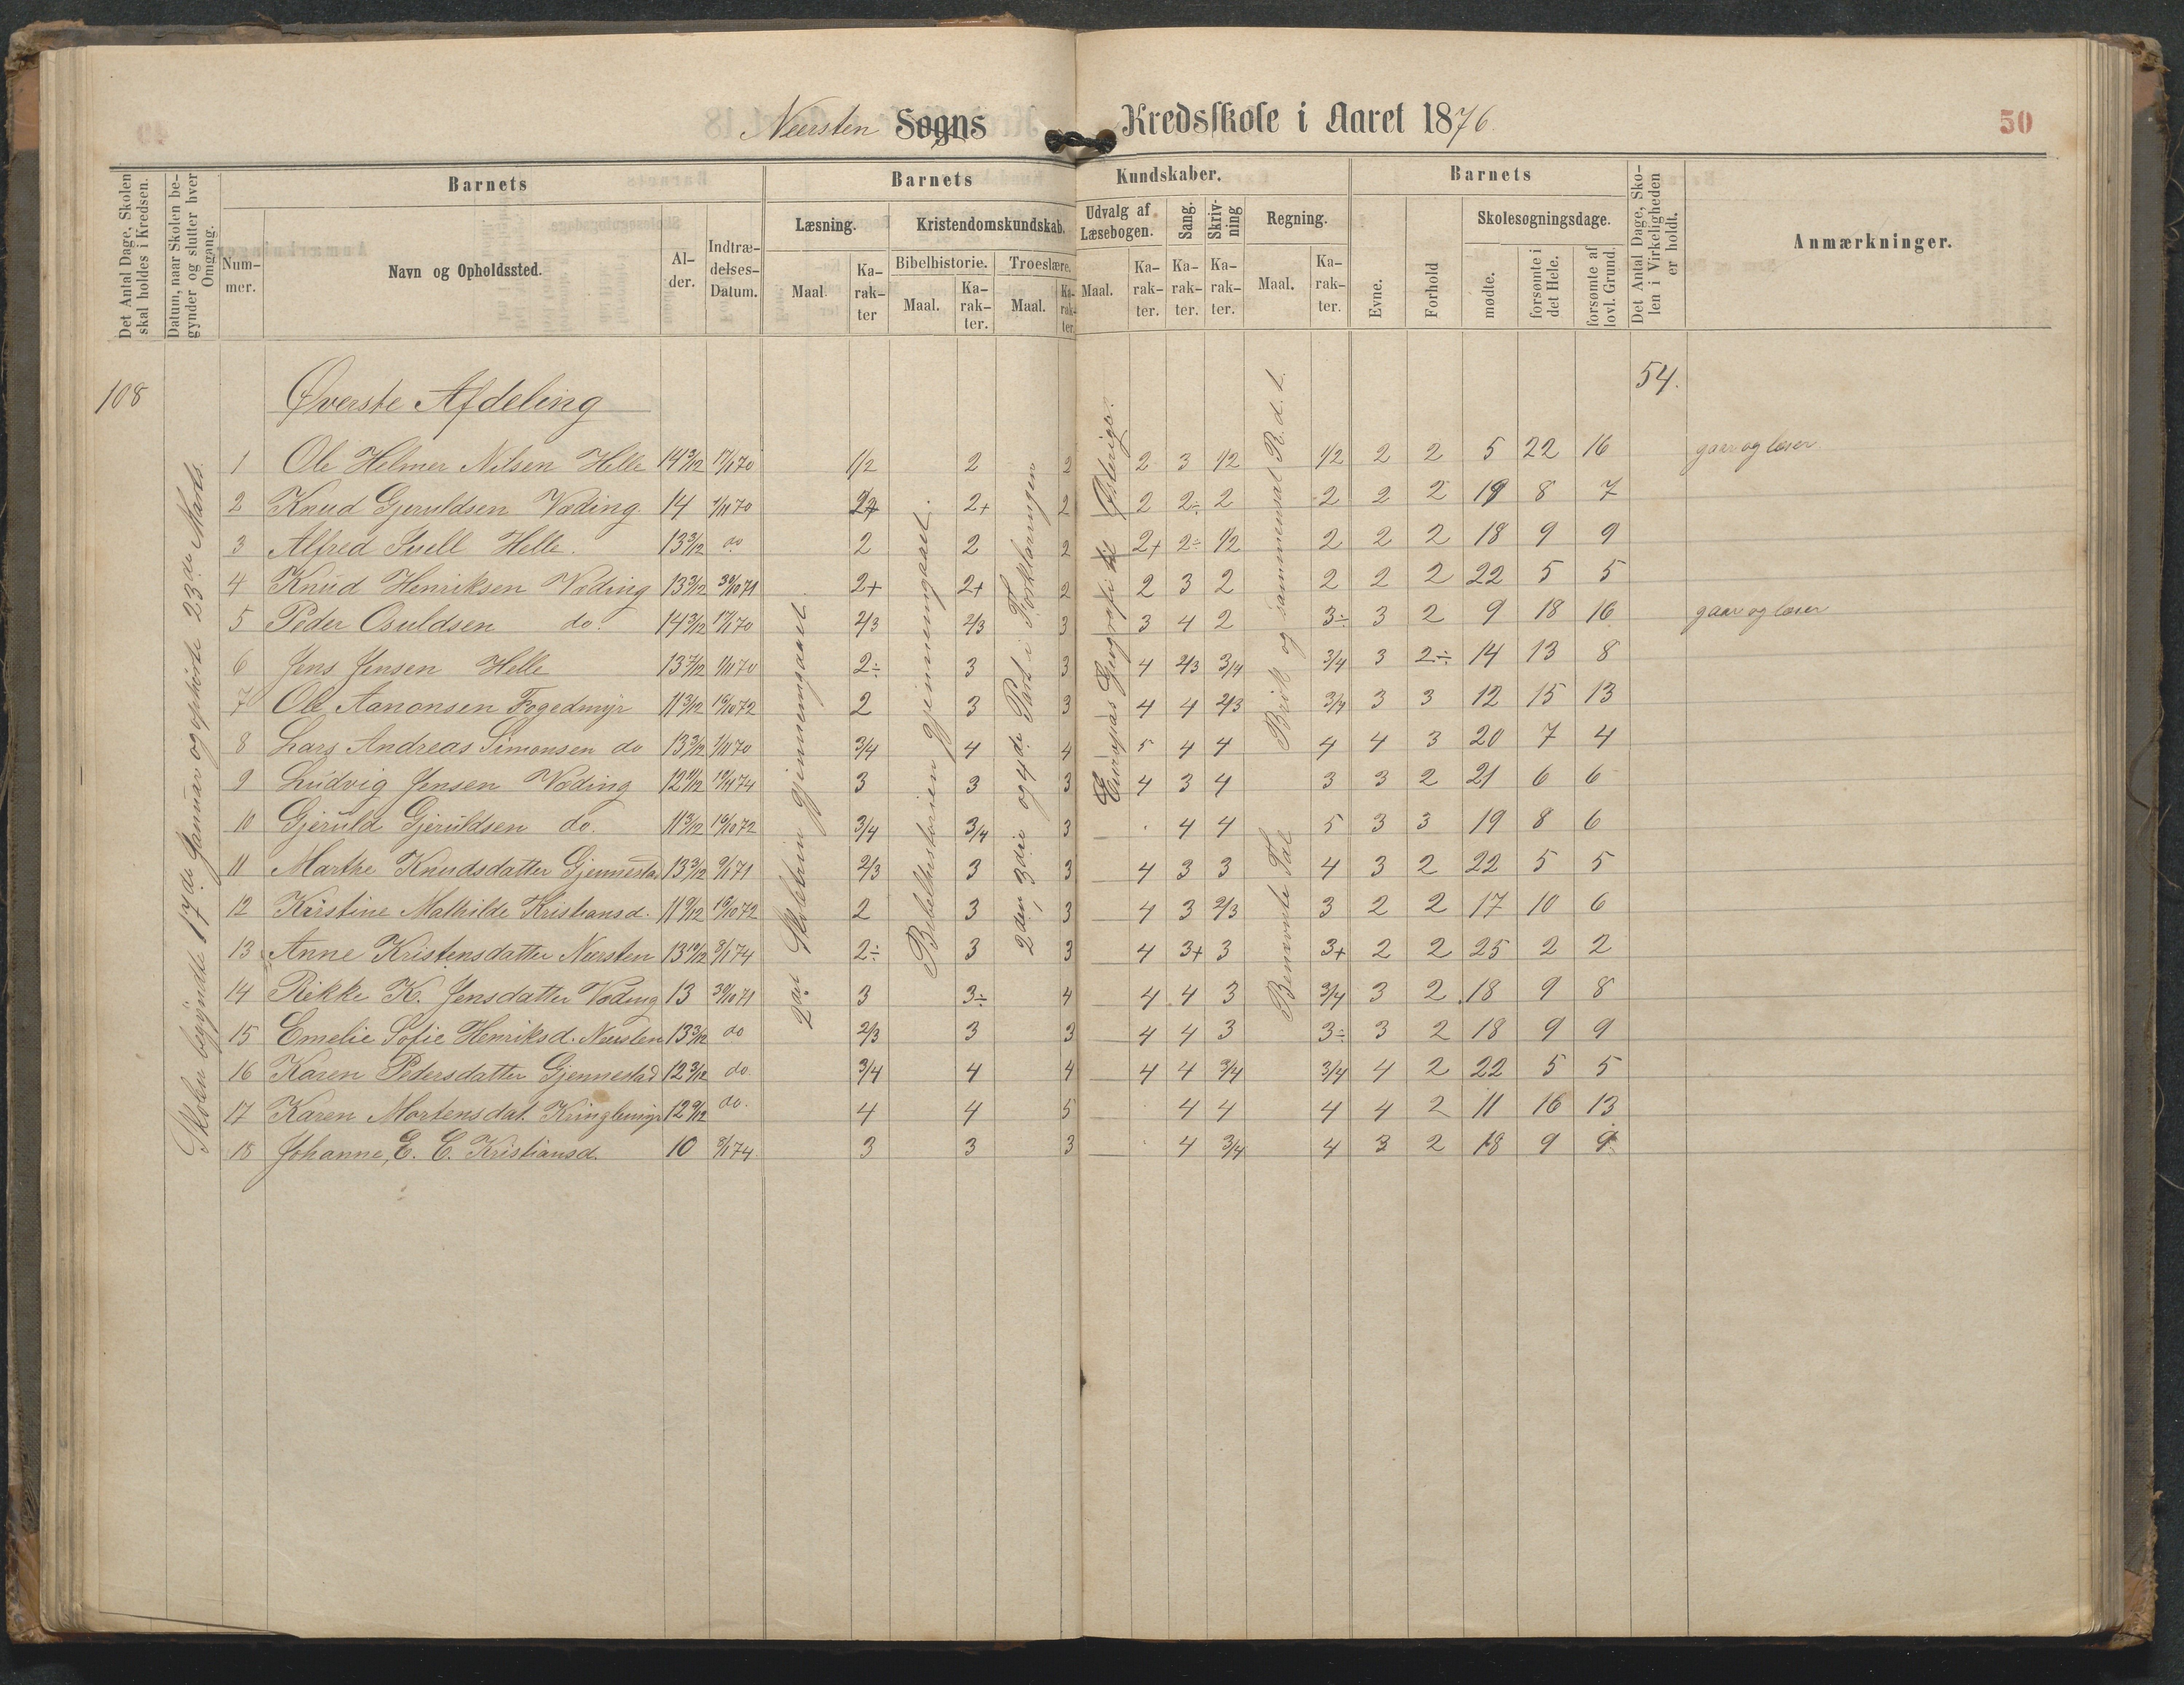 Neersten Sogns Kredsskole i Aaret 1876.
50
Det Antal Dage, Skolen skal holdes i Kredsen.
Datum, naar Skolen begynder og slutter hver Omgang.
Barnets
Nummer.
Navn og Opholdssted.
Alder.
Indtrædelses-Datum.
Barnets Kundskaber.
Læsning.
Maal.
Karakter
Kristendomskundskab.
Bibelhistorie.
Maal.
Karakter.
Troeslære.
Maal.
Karakter.
Udvalg af Læsebogen.
Maal.
Karakter.
Sang.
Karakter.
Skrivning
Karakter.
Regning.
Maal.
Karakter.
Barnets
Evne.
Forhold
Skolesøgningsdage.
mødte.
forsømte i det Hele.
forsømte af lovl. Grund
Det Antal Dage, Skolen i Virkeligheden er holdt.
Anmærkninger.
108
Øverste Afdeling
54.
Skolen begyndte 17de Januar og ophørte 23de Marts.
2den Skoletrin gjennemgaaet
Bibelhistorien gjennemgaaet.
2den, 3die og 4de Part i Forklaringen
Europas Geografi til Østerige.
Benævnte Tal Brøk og sammensat R. d. t.
1 Ole Helmer Nilsen Helle 14 3/12 17/1 70 1/2 2 2 2 3 1/2 1/2 2 2 5 22 16 gaar og læser
2 Knud Gjeruldsen Vøding 14 1/11 70 2+ 2+ 2 2 2÷ 2 2 2 2 19 8 7
3 Alfred Helle. 13 3/12 do 2 2 2 2+ 2÷ 1/2 2 2 2 18 9 9
4 Knud Henriksen Vøding 13 3/12 30/10 71 2+ 2+ 2 2 3 2 2 2 2 22 5 5
5 Peder Osuldsen do. 14 3/12 17/1 70 2/3 2/3 3 3 4 2 3÷ 3 2 9 18 16 gaar og læser
6 Jens Jensen Helle 13 7/12 1/11 70 2÷ 3 3 4 2/3 3/4 3/4 3 2÷ 14 13 8
7 Ole Aanonsen Fogedmyr 11 3/12 19/10 72 2 3 3 4 4 2/3 3/4 3 3 12 15 13
8 Lars Andreas Simonsen do 13 3/12 1/11 70 3/4 4 4 5 4 4 4 4 3 20 7 4
9 Ludvig Jensen Vøding 12 11/12 3 3 3 4 3 4 3 3 2 21 6 6
10 Gjeruld Gjeruldsen do. 11 3/12 19/10 72 3/4 3/4 3 4 4 5 3 3 19 8 6
11 Marthe Knudsdatter Gjennestad 13 3/12 9/1 71 2/3 3 3 4 3 3 4 3 2 22 5 5
12 Kristine Mathilde Kristiansd. 11 9/12 19/10 72 2 3 3 4 3 2/3 3 2 2 17 10 6
13 Anne Kristensdatter Neersten 13 10/12 8/1 74 2÷ 3 3 4 3+ 3 3+ 2 2 25 2 2
14 Rikke K. Jensdatter Vøding 13 30/10 71 3 3÷ 4 4 4 3 3/4 3 2 18 9 8
15 Emelie Sofie Henriksd. Neersten 13 3/12 do 2/3 3 3 4 4 3 3÷ 3 2 18 9 9
16 Karen Pedersdatter Gjennestad 12 3/12 do 3/4 4 4 4 4 3/4 3/4 4 2 22 5 5
17 Karen Mortensdat. Kringlemyr 12 9/12 do. 4 4 5 4 4 4 4 2 11 16 13
18 Johanne E. C. Kristiansd. 10 8/1 74 3 3 3 4 3/4 4 3 2 18 9 9